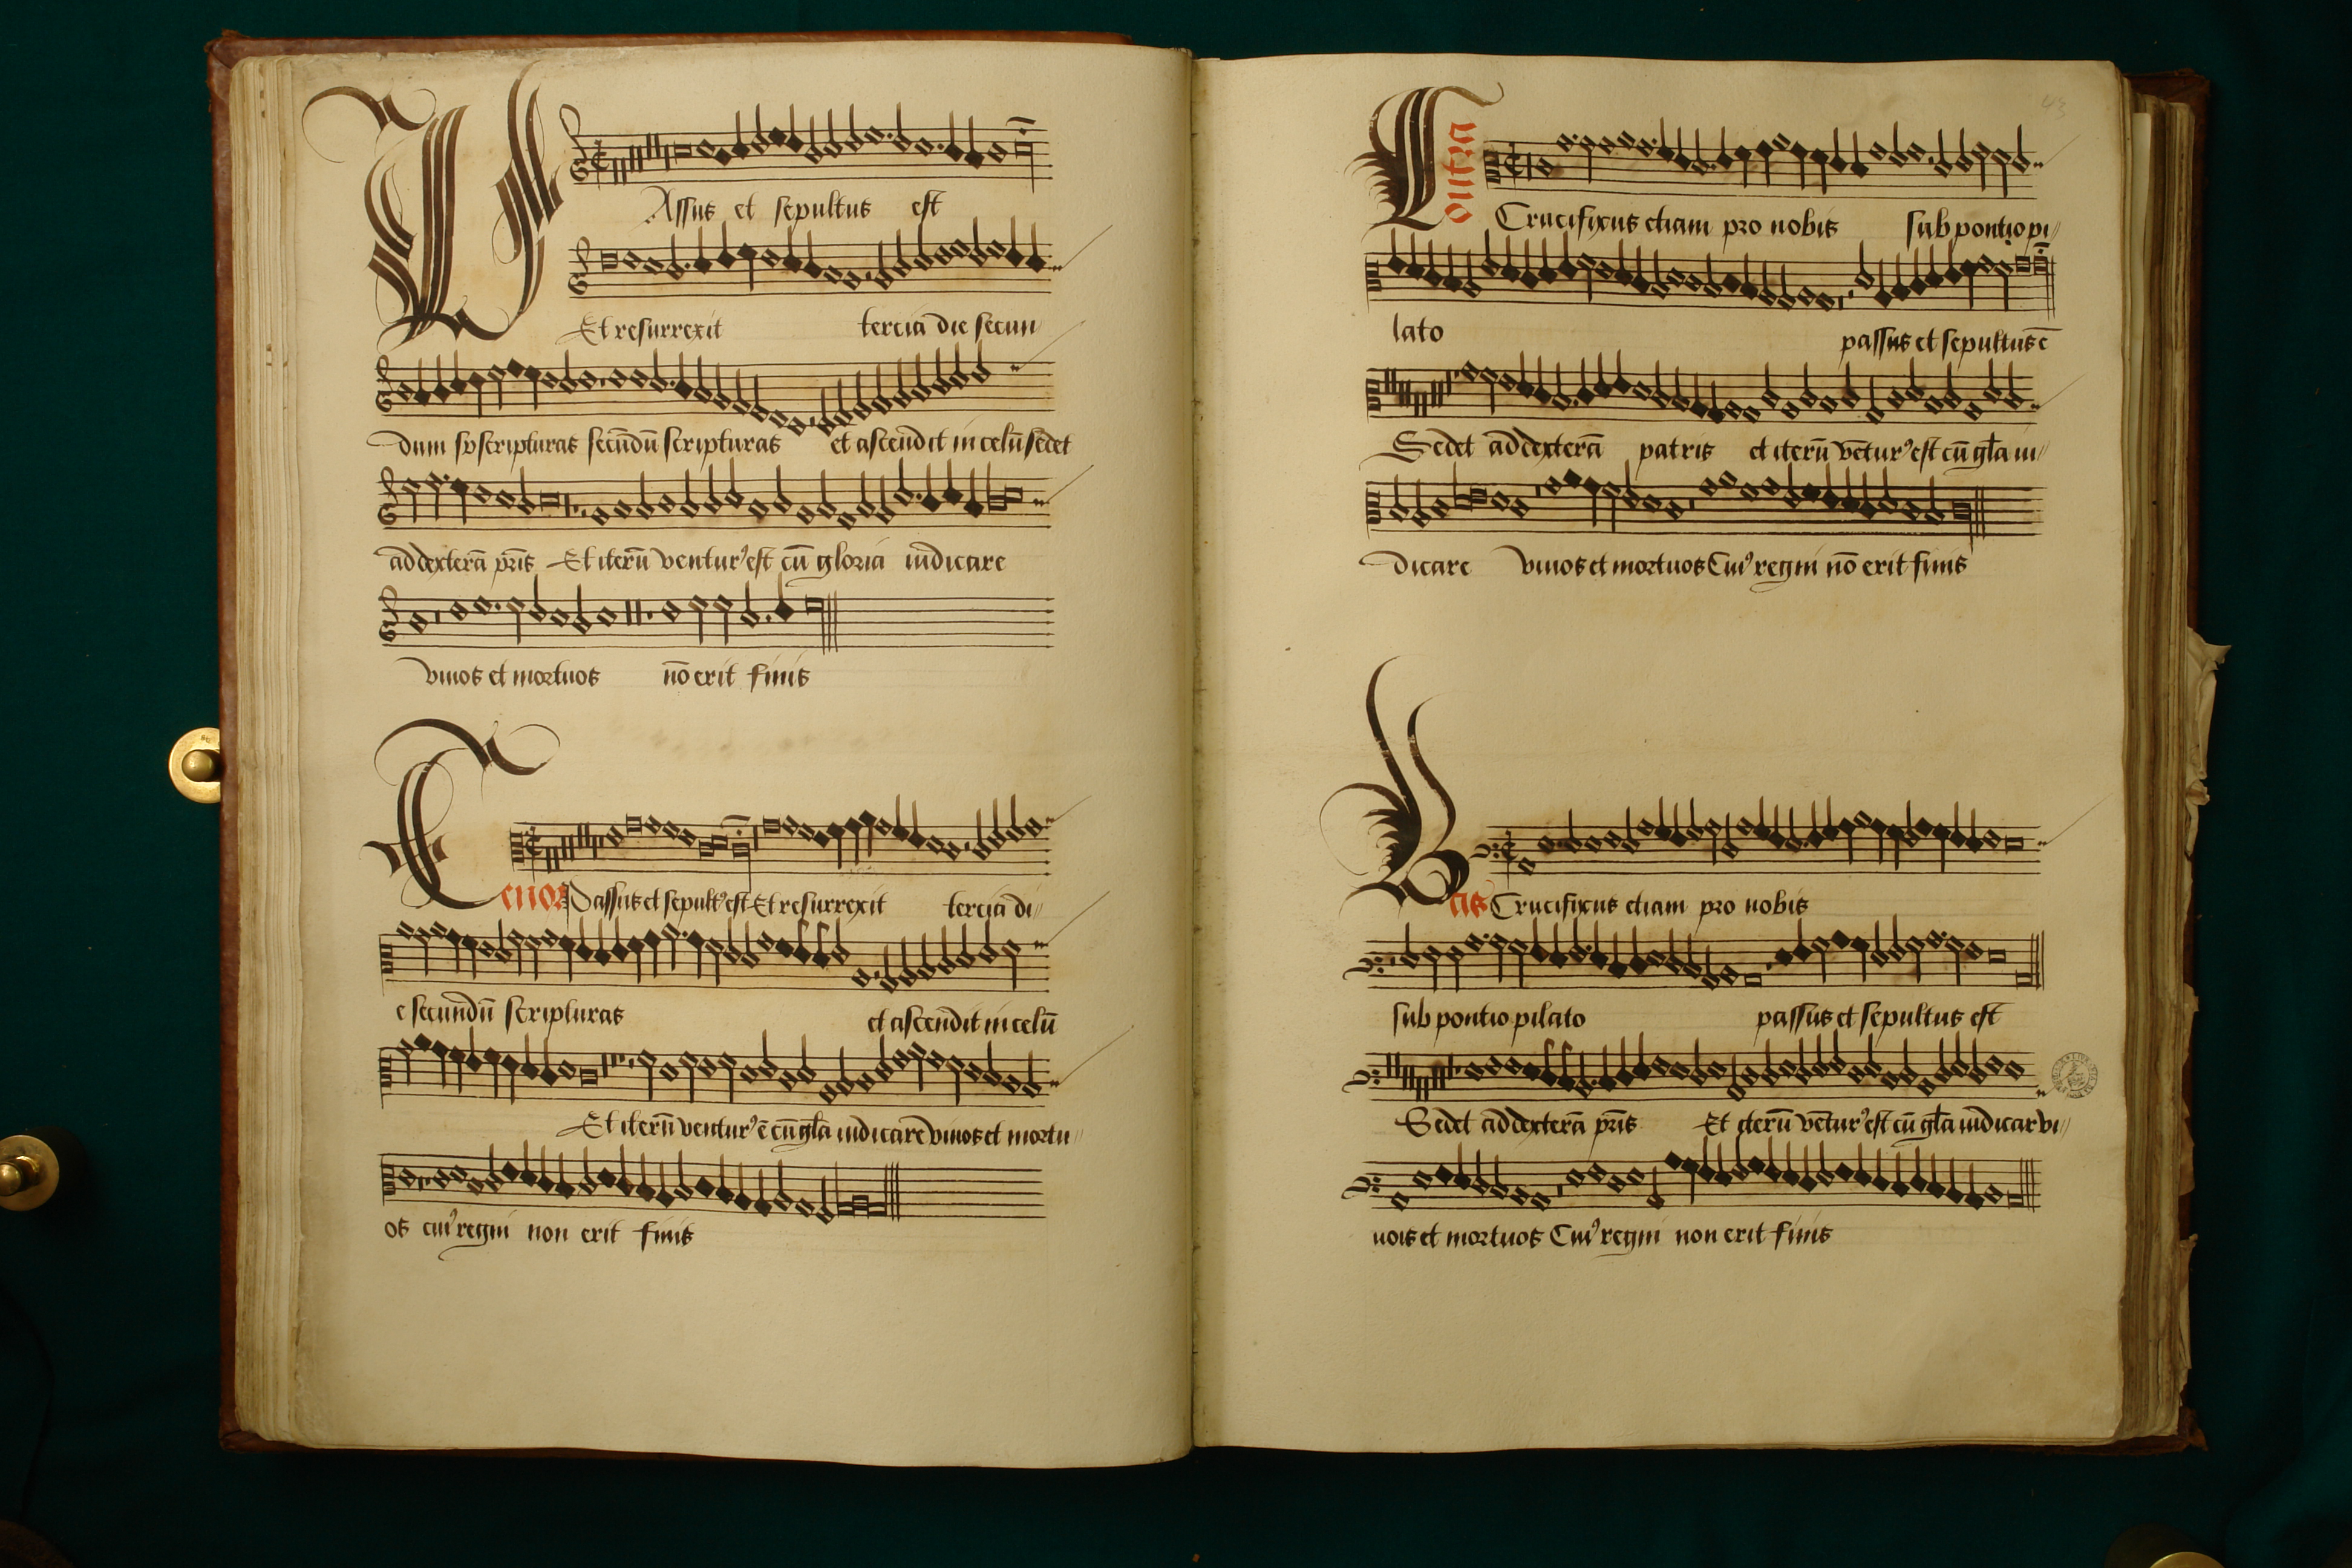 PAssus et sepultus est
Et resurrexit tercia die secun
dum scripturas secūdū scripturas et ascendit in celū sedet
ad dexterā pris Et iterū ventur⁹ est cū gloria iudicare
vivos et mortuos nō erit finis
Tenor Passus et sepult⁹ est Et resurrexit tercia di
e secundū scripturas et ascendit in celū
Et iterū ventur⁹ ē cū gla iudicare vivos et mortu
os cui⁹ regni non erit finis
43
Contra Crucifixus etiam pro nobis sub pontio pi
lato passus et sepultus ē
Sedet ad dexterā patris et iterū vētur⁹ est cū gla iu
dicare vivos et mortuos Cui⁹ regni nō erit finis
Bas Crucifixus etiam pro nobis
sub pontio pilato passus et sepultus est
Sedet ad dexterā pris Et iterū vētur⁹ est cū gla iudicar vi
uos et mortuos Cui⁹ regni non erit finis